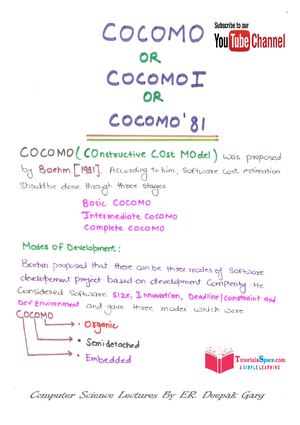 Subscribe to our
You Tube Channel
COCOMO
OR
COCOMO I
OR
COCOMO'81
COCOMO (COnstructive COst MOdel) was proposed
by Boehm [1981]. According to him, Software Cost estimation
Should be done through three stages
Basic COCOMO
Intermediate COCOMO
Complete COCOMO
Modes of Development:
Boehm proposed that there can be three modes of software
development project based on development Complexity. He
Considered Software Size, Innovation, Deadline/Constraint and
Dev. Environment and gave three modes which were
COCOMO
• Organic
• Semidetached
• Embedded
TutorialsSpace.com
A SIMPLE LEARNING
Computer Science Lectures By ER. Deepak Garg